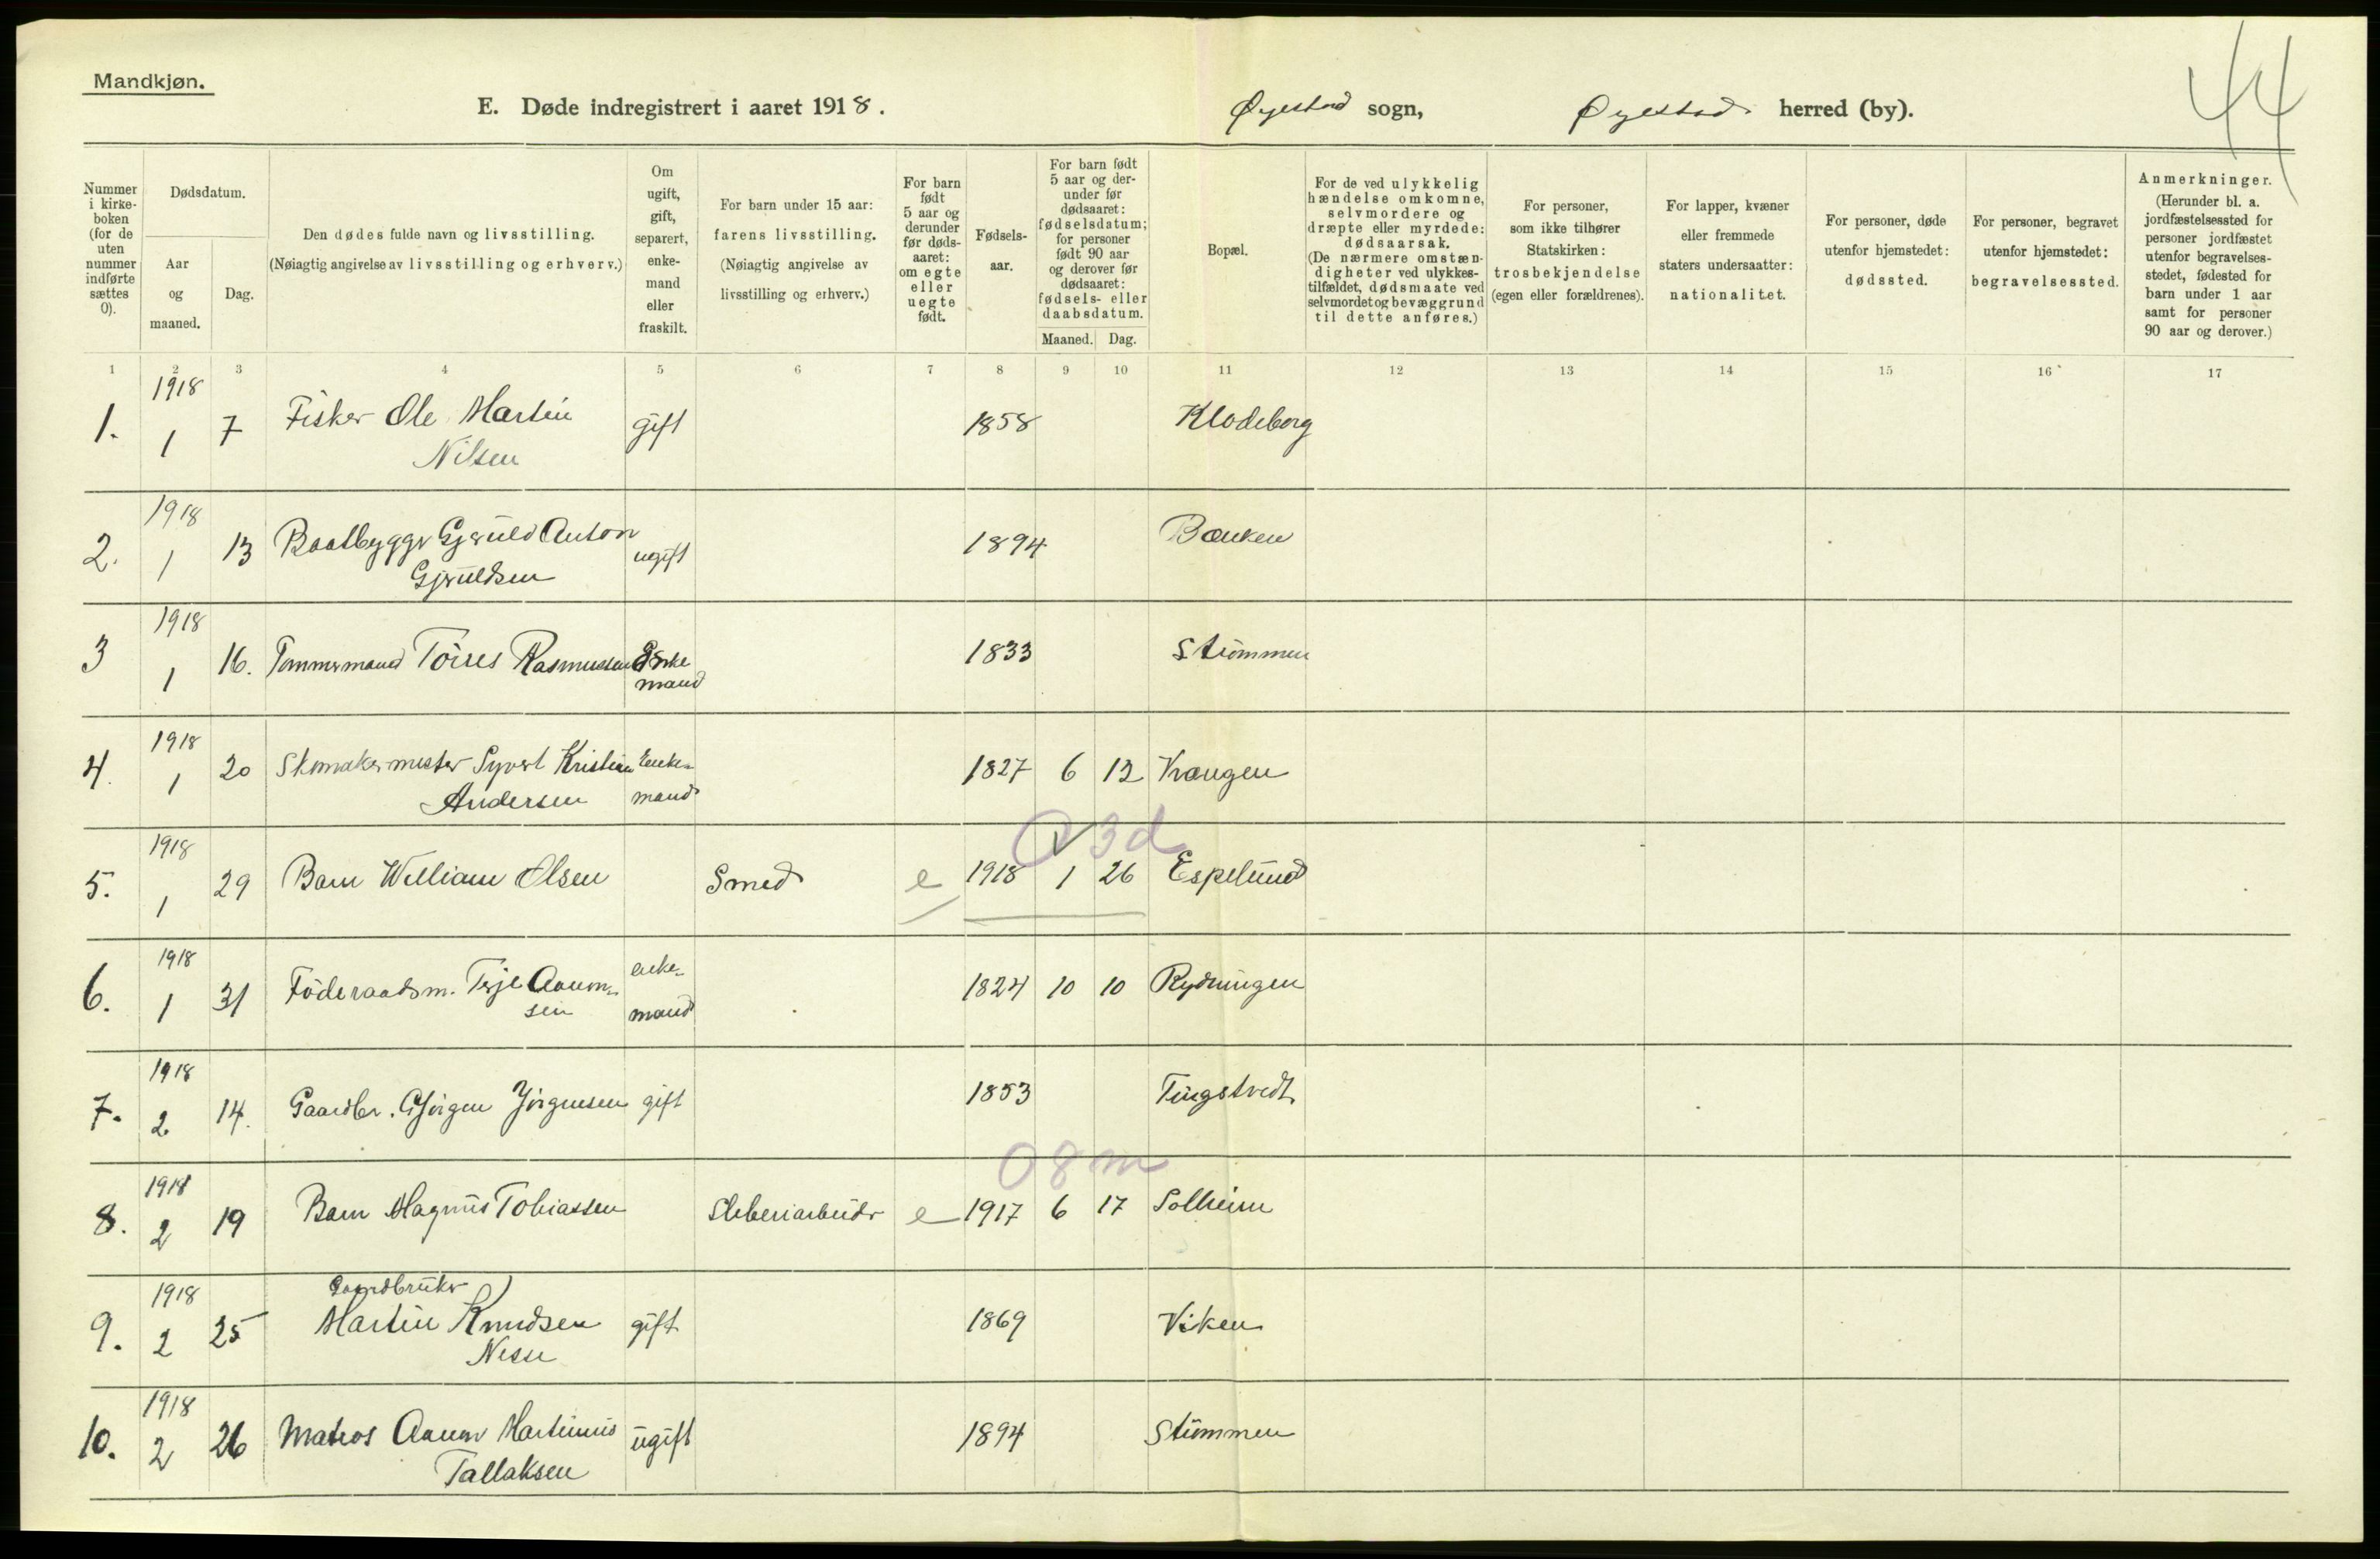 Mandkjøn.
E. Døde indregistrert i aaret 1918.
Øyestad sogn, Øyestad herred (by).
44
Nummer i kirke-boken (for de uten nummer indførte sættes 0).
Dødsdatum.
Aar og maaned.
Dag.
Den dødes fulde navn og livsstilling.
(Nøiagtig angivelse av livsstilling og erhverv.)
Om ugift, gift, separert, enke-mand eller fraskilt.
For barn under 15 aar:
farens livsstilling.
(Nøiagtig angivelse av
livsstilling og erhverv.)
For barn født 5 aar og derunder før døds-aaret: om egte eller uegte født.
Fødsels-aar.
For barn født 5 aar og der-under før dødsaaret: fødselsdatum; for personer født 90 aar og derover før dødsaaret: fødsels- eller daabsdatum.
Maaned. Dag.
Bopæl.
For de ved ulykkelig hændelse omkomne, selvmordere og dræpte eller myrdede: dødsaarsak. (De nærmere omstæn-digheter ved ulykkes-tilfældet, dødsmaate ved selvmordet og bevæggrund til dette anføres.)
For personer, som ikke tilhører Statskirken: trosbekjendelse (egen eller forældrenes).
For lapper, kvæner eller fremmede staters undersaatter: nationalitet.
For personer, døde utenfor hjemstedet: dødssted.
For personer, begravet utenfor hjemstedet: begravelsessted.
Anmerkninger. (Herunder bl. a. jordfæstelsessted for personer jordfæstet utenfor begravelses-stedet, fødested for barn under 1 aar samt for personer 90 aar og derover.)
1 2 3 4 5 6 7 8 9 10 11 12 13 14 15 16 17
1918
1. 1 7 Fisker Ole Martin gift 1858 Klodeborg
Nilsen
1918
2. 1 13 Baatbygger Gjeruld Anton ugift 1894 Banken
Gjeruldsen
1918
3 1 16. Tømmermand Tøres Rasmussen Enke 1833 Strømmen
mand
1918
4. 1 20 Skomakermester Syvert Kristian Enke- 1827 6 12 Vrangen
Andersen mand
0 3d
1918
5. 1 29 Barn William Olsen Smed e 1918 1 26 Espelund
1918
6. 1 31 Föderaadsm. Terje Aanon- enke- 1824 10 10 Rydningen
sen mand
1918
7. 2 14. Gaardbr. Jørgen Jörgensen gift 1853 Tingstvedt
0 8m
1918
8. 2 19 Barn Magnus Tobiassen Sliberiarbeider e 1917 6 17 Solheim
1918 Gaardbruker
9. 2 25 Martin Knudsen gift 1869 Viken
1918
10. 2 26 Matros Aanon Martinius ugift 1894 Strømmen
Tallaksen